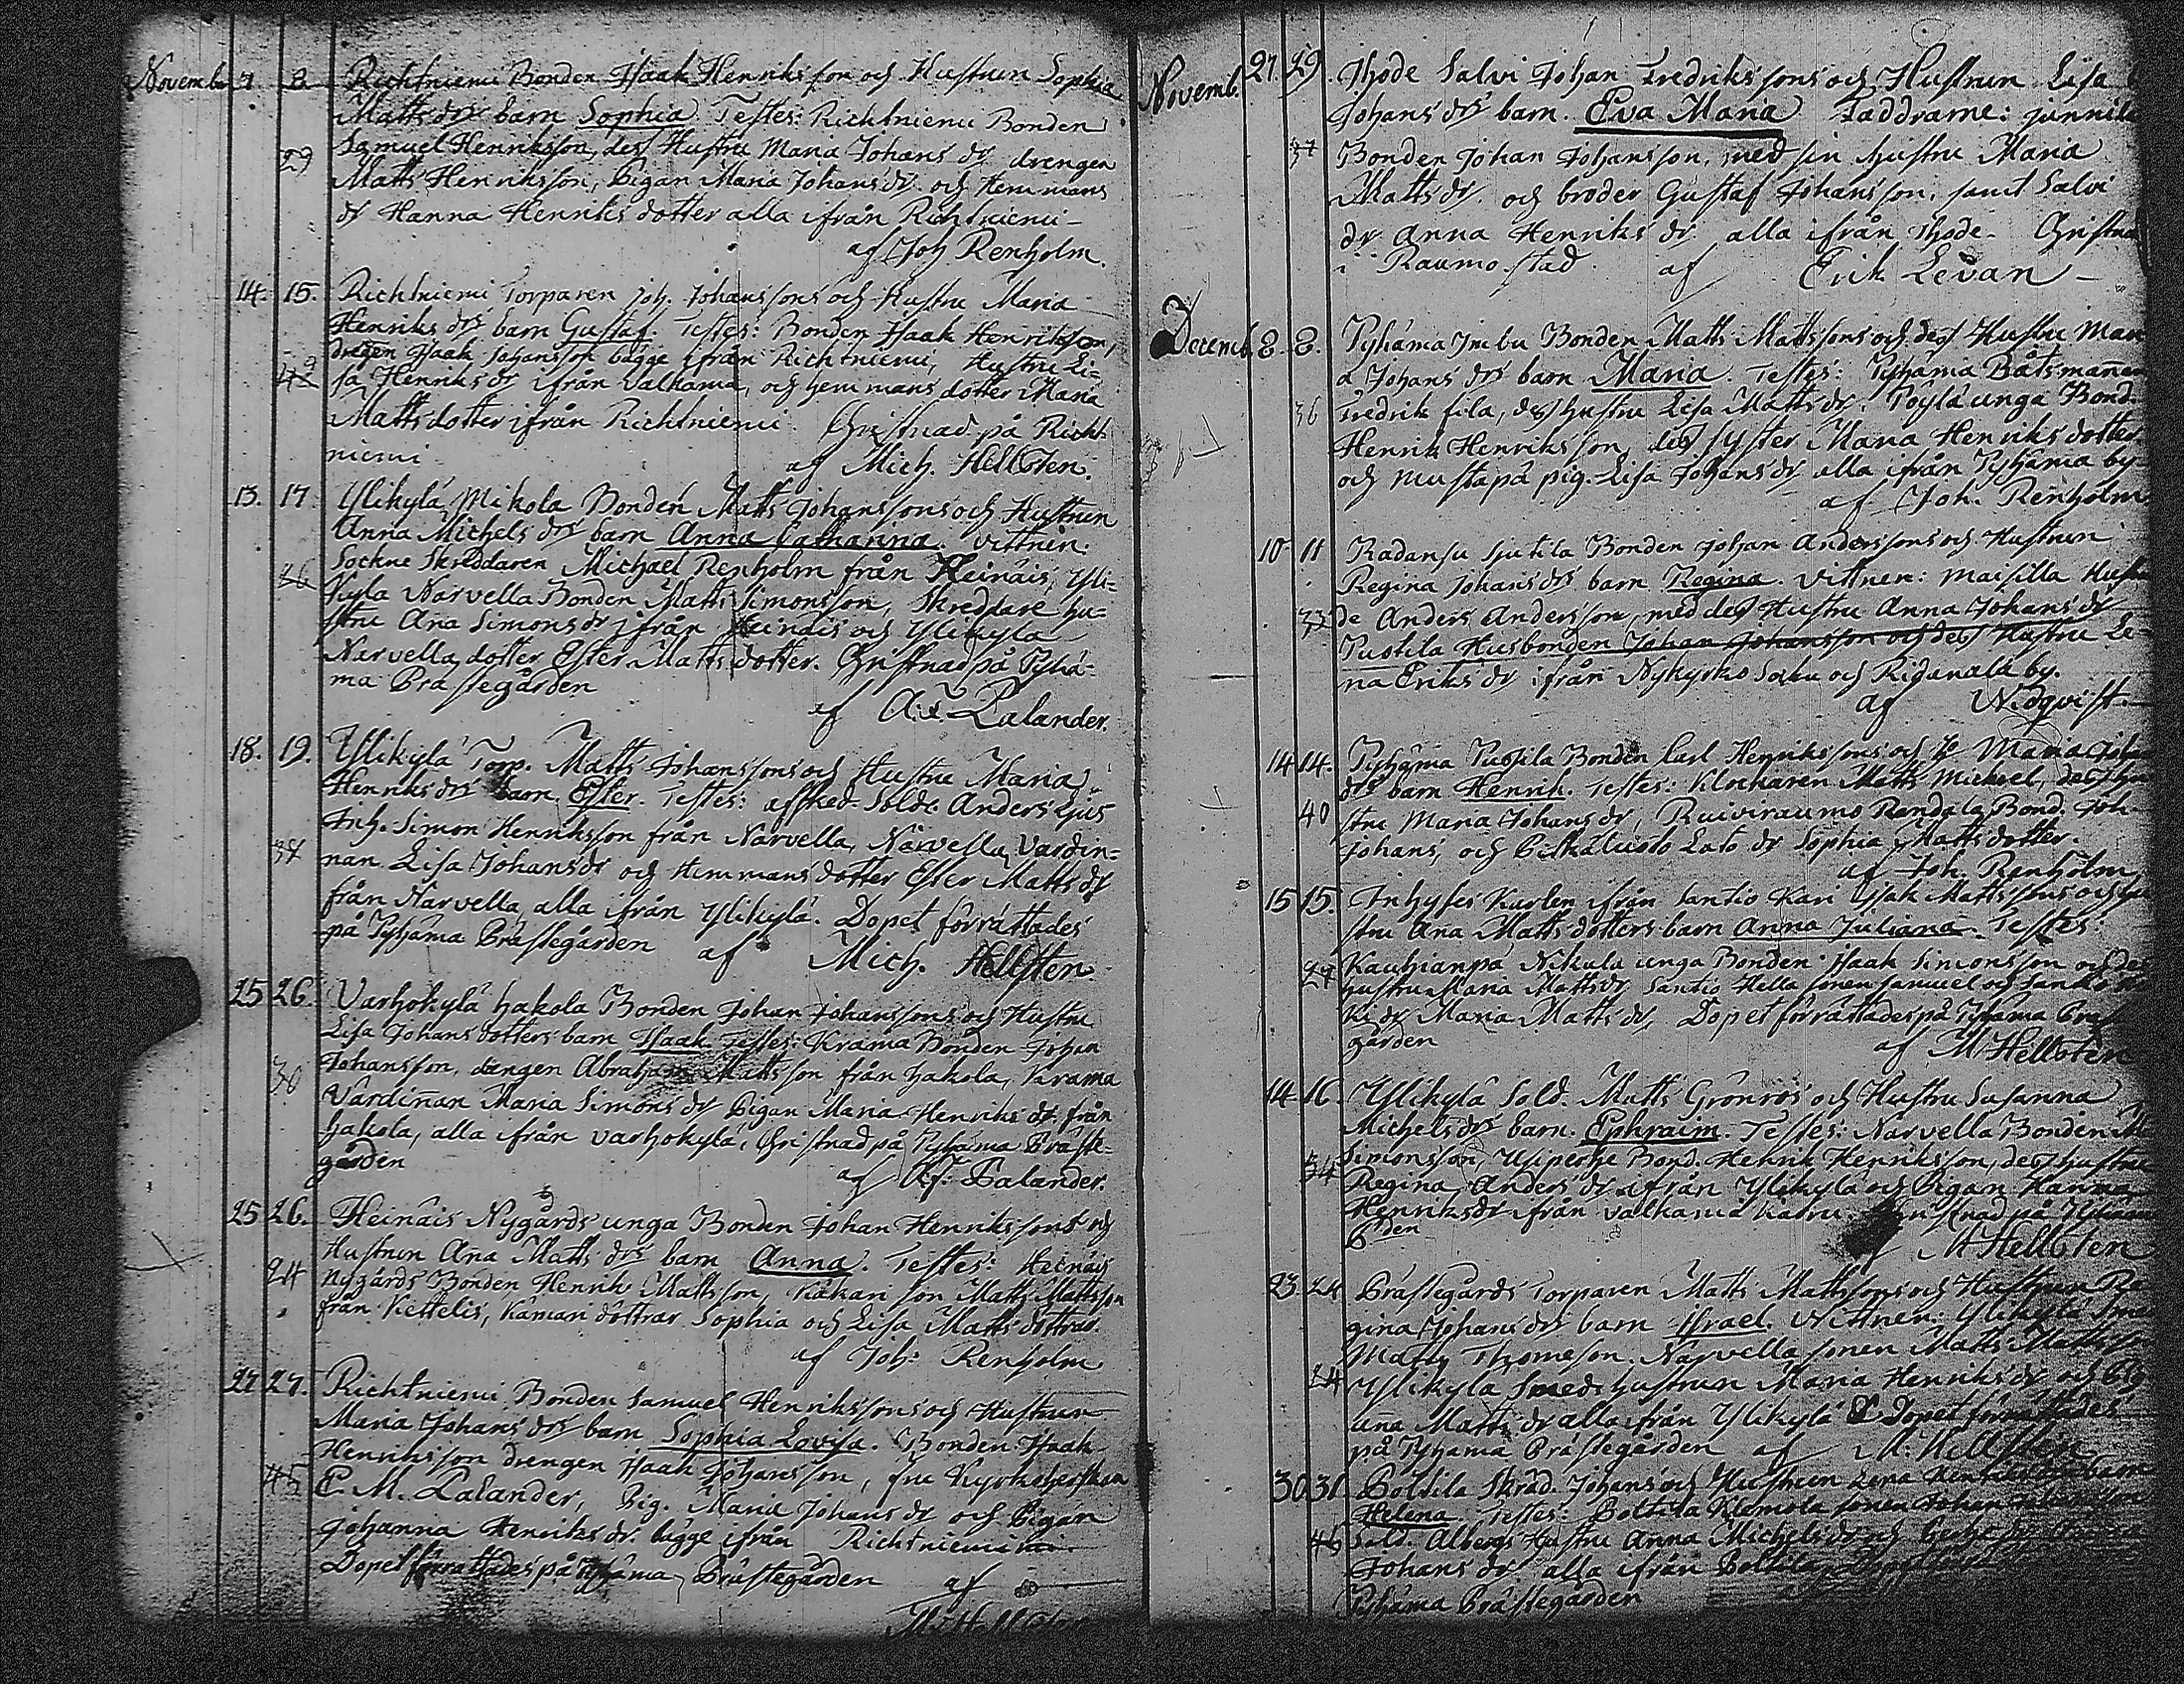 Novemb. 7. 8. Richtniemi Bonden Isaak Henriks son och Hustrun Sophia
Matts drs barn Sophia. Testes: Richtniemi Bonden
29 Samuel Henriksson, dess Hustru Maria Johans dr drengen
Matts Henriksson, Pigan Maria Johans dr. och Hemmans
dr Hanna Henriks dotter alla ifrån Richtniemi –
af Joh Renholm.
14. 15. Richtniemi Torparen Joh. Johanssons och Hustru Maria
Henriks drs barn Gustaf. Testes: Bonden Isaak Henriksson,
drengen Isaak Johansson bägge ifrån Richtniemi, Hustru Li=
sa Henriks dr ifrån Valkama, och hemmans dotter Maria
Matts dotter ifrån Richtniemi. Christnad på Richt=
niemi af Mich. Hellsten.
13. 17. Ylikylä Mikola Bonden Matts Johanssons och Hustrun
Anna Michels drs barn Anna Catharina. Vittnen:
36 Sockne Skreddaren Michael Renholm från Heinäis, Yli=
kyla Narvella Bonden Matts Simonsson, Skreddare hu=
stru Ana Simons dr ifrån Heinäis och Ylikyla
Narvella dotter Ester Matts dotter. Christnad på Pyhä=
ma Prästegården
af A. F. Lalander.
18. 19. Ylikylä Torp. Matts Johanssons och Hustru Maria
Henriks drs barn Ester. Testes: afsked. Sold. Anders Ljus
Inh. Simon Henriksson från Narvella, Narvella Värdin=
37 nan Lisa Johans dr och Hemmans dotter Ester Matts dr
från Narvella, alla ifrån Ylikylä. Dopet förrättades
på Pyhäma Prästegården af Mich. Hellsten.
25 26. Varhokylä hakola Bonden Johan Johanssons och Hustru
Lisa Johans dotters barn Isaak. Testes: Krama Bonden Johan
30 Johansson, drengen Abraham Mattsson från hakola, Krama
Värdiñan Maria Simons dr Pigan Maria Henriks dr från
hakola, alla ifrån Varhokylä, Christnad på Pyhäma Präste=
gården
af A. F. Lalander.
25 26. Heinäis Nygårds unga Bonden Johan Henrikssons och
Hustrun Ana Matts drs barn Anna. Testes: Heinäis
24 Nygårds Bonden Henrik Mattsson, Käkari son Matts Mattsson
från Kettelis, Kamari döttrar Sophia och Lisa Matts döttrar.
af Joh: Renholm
27 27. Richtniemi Bonden Samuel Henrikssons och Hustrun
Maria Johans drs barn Sophia Lovisa. Bonden Isaak
Henriksson drengen Isaak Johansson, fru Kyrkoherskan
45 E. M. Lalander, Pig. Maria Johans dr och Pigan
Johanna Henriks dr. bägge ifrån Richtniemi
Dopet förrättades på Pyhäma Prästegården af
M. Hellsten
Novemb. 27. 29. Ihode Salvi Johan Fredrikssons och Hustrun Lisa
Johans drs barn. Eva Maria Faddrarne:
37 Bonden Johan Johansson, med sin hustru Maria
Matts dr. och broder Gustaf Johansson, samt Salvi
dr Anna Henriks dr alla ifrån Ihode. Christnad
i Raumo stad. af Erik Levan –
Decemb. 8. 8. Pyhäma Imbu Bonden Matts Mattssons och dess Hustru Mari
a Johans drs barn Maria. Testes: Pyhäma Båtsmañen
36 Fredrik fila, dess hustru Lisa Matts dr. Pöylä unga Bond.
Henrik Henriksson, dess syster Maria Henriks dotter
och Mustapä pig. Lisa Johans dr alla ifrån Pyhäma by
af Joh. Renholm
10 11 Radansu Sjutila Bonden Johan Anderssons och Hustrun
Regina Johans drs barn Regina. Vittnen: Maisilla
33 de Anders Andersson, med dess Hustru Anna Johans dr
Puotila Husbonden Johan Johansson och dess Hustru Le=
na Eriks dr ifrån Nykyrko Sokn och Ridanala by.
af Widqvist.
14 14. Pyhäma Puotila Bonden Carl Henrikssons och H. Maria
drs barn Henrik. Testes: Klockaren Matts Michael, dess hu
40 stru Maria Johans dr, Ruiviraumo Randala Bond. Joh.
Johans, och Pitkäluoto Lato dr Sophia Matts dotter.
af Joh. Renholm
15 15. Inhyses Karlen ifrån Santio Kari Isak Mattssons och hu
stru Ana Matts dotters barn Anna Juliana. Testes:
27 Kauhianpä Nikula unga Bonden Isaak Simonsson och des
hustru Maria Matts dr Santio Hella sonen Samuel och Santio
dr Maria Matts dr, Dopet förrättades på Pyhäma Prä
gården
af M Hellsten
14 16. Ylikylä Sold. Matts Grönros och Hustru Susanna
Michels drs barn. Ephraim. Testes: Narvella Bonden
34 Simonsson, Bond. Henrik Henriksson, dess hustru
Regina Anders dr ifrån Ylikylä och Pigan Hanna
Henriks dr ifrån Valkama
M Hellsten
23. 24 Prästegårds Torparen Matts Mattssons och Hustrun Re
gina Johans drs barn Israel. Vittnen: Ylikylä
Thomeson. Narvella sonen Matts
Ylikyla Smeds hustrun Maria Henriks dr och
Matts dr alla ifrån Ylikylä Dopet förrättades
på Pyhama Prästegården af M. Hellsten
30. 31. Boltila Skräd. Johans och Hustrun Lena
Helena. Testes: Boltila Klemola sonen Johan
46 Sold. Albergs Hustru Anna Michels dr och
Johans dr alla ifrån Boltila.
Pyhäma Prästegården